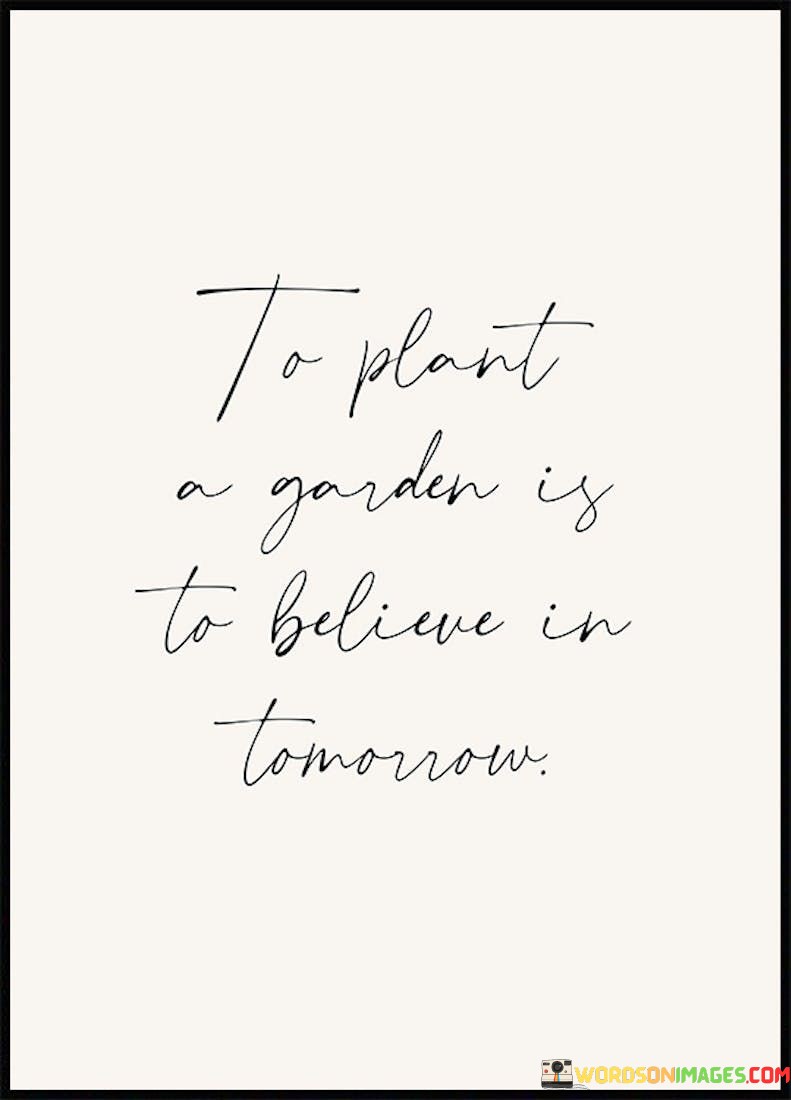 To plant
a garden is
to believe in
tomorrow.
WORDSONIMAGES.COM